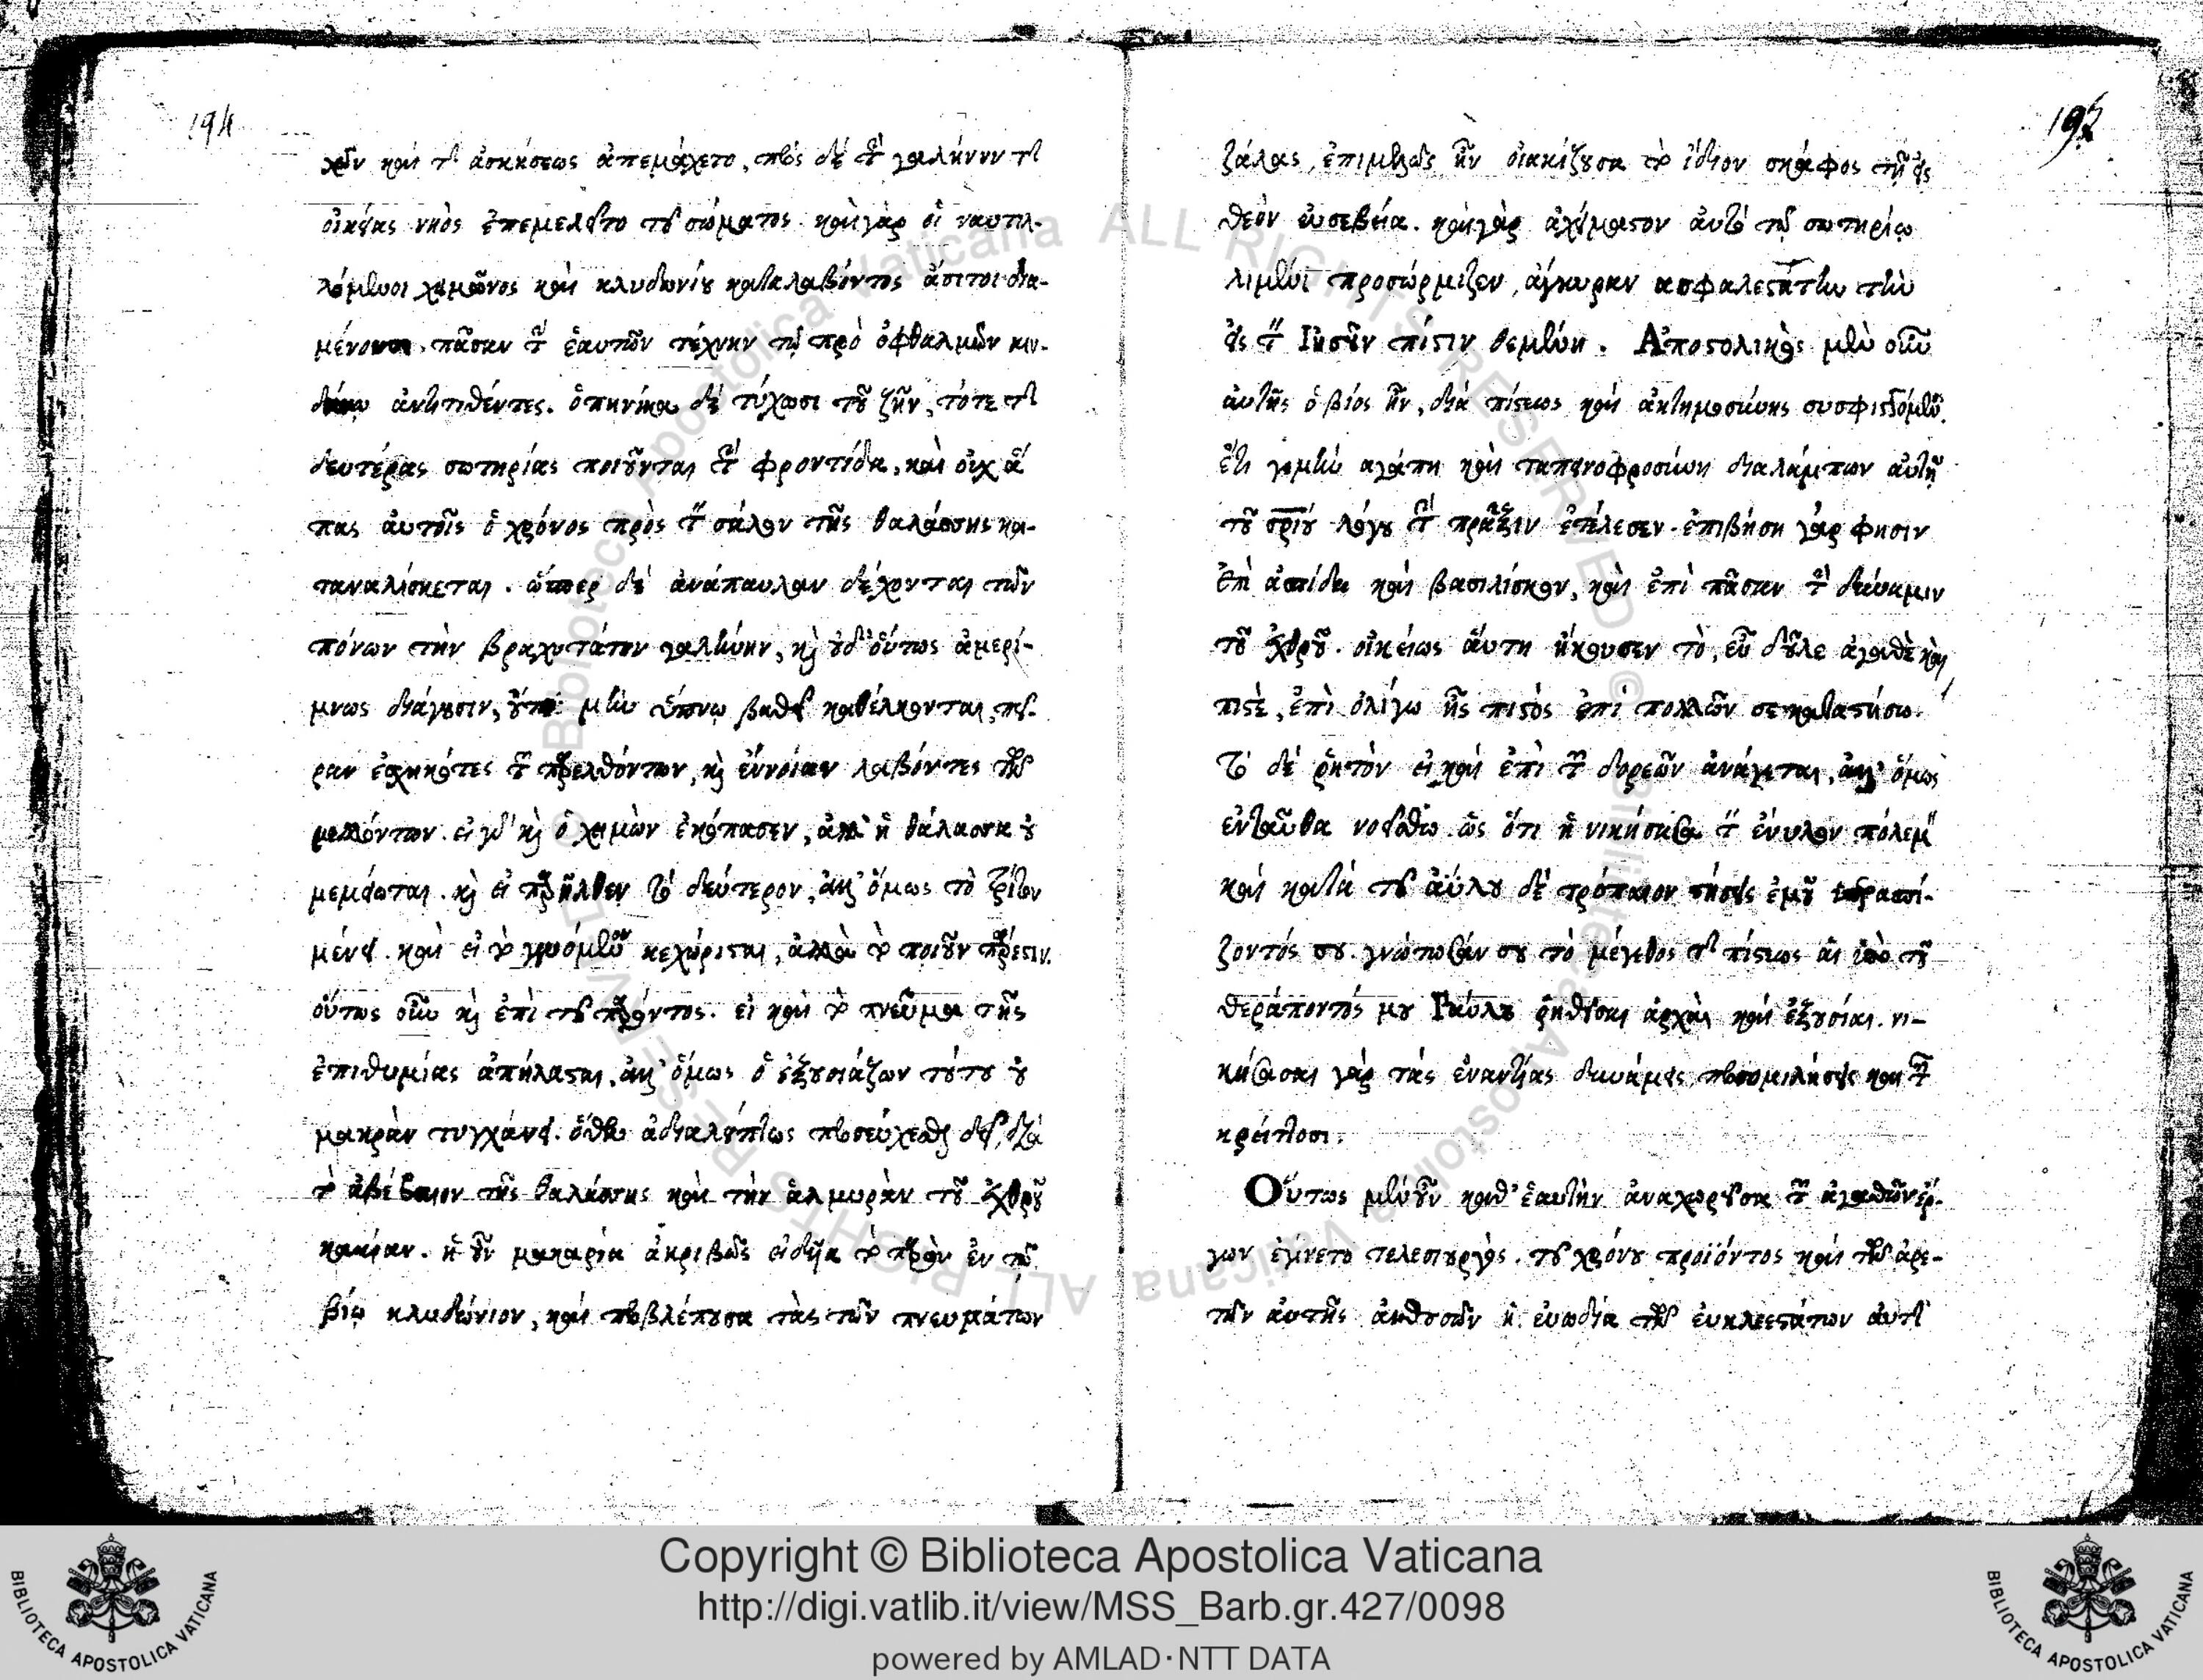 194
χῶν καὶ τῆς ἀσκήσεως ἀπεμάχετο, πρὸς δὲ τὴν γαλήνην τῆς
οἰκείας νηὸς ἐπεμελεῖτο τοῦ σώματος. καὶ γὰρ οἱ ναυτιλ-
λόμενοι χειμῶνος καὶ κλυδωνίου καταλαβόντος ἄσιτοι δια-
μένουσι, πᾶσαν τὴν ἑαυτῶν τέχνην τῷ πρὸ ὀφθαλμῶν κιν-
δύνῳ ἀντιτιθέντες. ὁπηνίκα δὲ τύχωσι τοῦ ζῆν, τότε τῆς
δευτέρας σωτηρίας ποιοῦνται τὴν φροντίδα, καὶ οὐχ ἅ
πας αὐτοῖς ὁ χρόνος πρὸς τὸν σάλον τῆς θαλάσσης κα-
ταναλίσκεται. ὥσπερ δὲ ἀνάπαυλαν δέχονται τῶν
πόνων τὴν βραχυτάτην γαλήνην, καὶ οὐδ' οὕτως ἀμερί-
μνως διάγουσιν, οὔτε μὴν ὕπνῳ βαθεῖ καθέλκονται, πεῖ-
ραν ἐσχηκότες τῶν παρελθόντων, καὶ εὔνοιαν λαβόντες τῶν
μελλόντων. εἰ γὰρ καὶ ὁ χειμὼν ἐκόπασεν, ἀλλ' ἡ θάλασσα οὐ
μεμείωται. καὶ εἰ παρῆλθεν τὸ δεύτερον, ἀλλ' ὅμως τὸ τρίτον
μένει. καὶ εἰ τὸ γενόμενον κεχώρισται, ἀλλὰ τὸ ποιοῦν πάρεστιν.
οὕτως οὖν καὶ ἐπὶ τοῦ παρόντος. εἰ καὶ τὸ πνεῦμα τῆς
ἐπιθυμίας ἀπήλασται, ἀλλ' ὅμως ὁ ἐξουσιάζων τούτου οὐ
μακρὰν τυγχάνει. ὅθεν ἀδιαλείπτως προσεύχεσθαι δεῖ, διὰ
τὸ ἀβέβαιον τῆς θαλάσσης καὶ τὴν ἁλμυρὰν τοῦ ἐχθροῦ
κακίαν. ἡ οὖν μακαρία ἀκριβῶς εἰδυῖα τὸ παρὸν ἐν τῷ
βίῳ κλυδώνιον, καὶ προβλέπουσα τὰς τῶν πνευμάτων
195
ζάλας, ἐπιμελῶς ἦν οἰακίζουσα τὸ ἴδιον σκάφος τῇ εἰς
θεὸν εὐσεβείᾳ. καὶ γὰρ ἀχείμαστον αὐτὸ τῷ σωτηρίῳ
λιμένι προσώρμιζεν, ἄγκυραν ἀσφαλεστάτην τὴν
εἰς τὸν Ἰησοῦν πίστιν θεμένη. Ἀποστολικὸς μὲν οὖν
αὐτῆς ὁ βίος ἦν, διὰ πίστεως καὶ ἀκτημοσύνης συσφιγγόμενος.
ἔτι γε μὴν ἀγάπῃ καὶ ταπεινοφροσύνῃ διαλάμπων αὐτῇ
τοῦ σωτηρίου λόγου τὴν πρᾶξιν ἐτέλεσεν. ἐπιβήσῃ γάρ φησιν
ἐπὶ ἀσπίδα καὶ βασιλίσκον, καὶ ἐπὶ πᾶσαν τὴν δύναμιν
τοῦ ἐχθροῦ. οἰκείως αὕτη ἤκουσεν τὸ, εὖ δοῦλε ἀγαθὲ καὶ
πιστὲ, ἐπὶ ὀλίγῳ ἦς πιστός ἐπὶ πολλῶν σε καταστήσω.
τὸ δὲ ῥητὸν εἰ καὶ ἐπὶ τῶν δωρεῶν ἀνάγεται, ἀλλ' ὅμως
ἐνταῦθα νοείσθω. ὡς ὅτι ἡ νικήσασα τὸν ἔνυλον πόλεμον
καὶ κατὰ τοῦ ἀΰλου δὲ τρόπαιον στήσεις ἐμοῦ ὑπερασπί-
ζοντός σου. γνώτωσάν σου τὸ μέγεθος τῆς πίστεως αἱ ὑπὸ τοῦ
θεράποντός μου Παύλου ῥηθεῖσαι ἀρχαὶ καὶ ἐξουσίαι. νι-
κήσασα γὰρ τὰς ἐναντίας δυνάμεις, προσομιλήσεις καὶ τῶν
κρείττοσι.
Οὕτως μὲν οὖν καθ' ἑαυτὴν ἀναχωροῦσα τῶν ἀγαθῶν ἔρ-
γων ἐγίνετο τελεσιουργός. τοῦ χρόνου προϊόντος καὶ τῶν ἀρε-
τῶν αὐτῆς ἀνθουσῶν ἡ εὐωδία τῶν εὐκλεεστάτων αὐτῆς
Copyright © Biblioteca Apostolica Vaticana
http://digi.vatlib.it/view/MSS_Barb.gr.427/0098
powered by AMLAD·NTT DATA